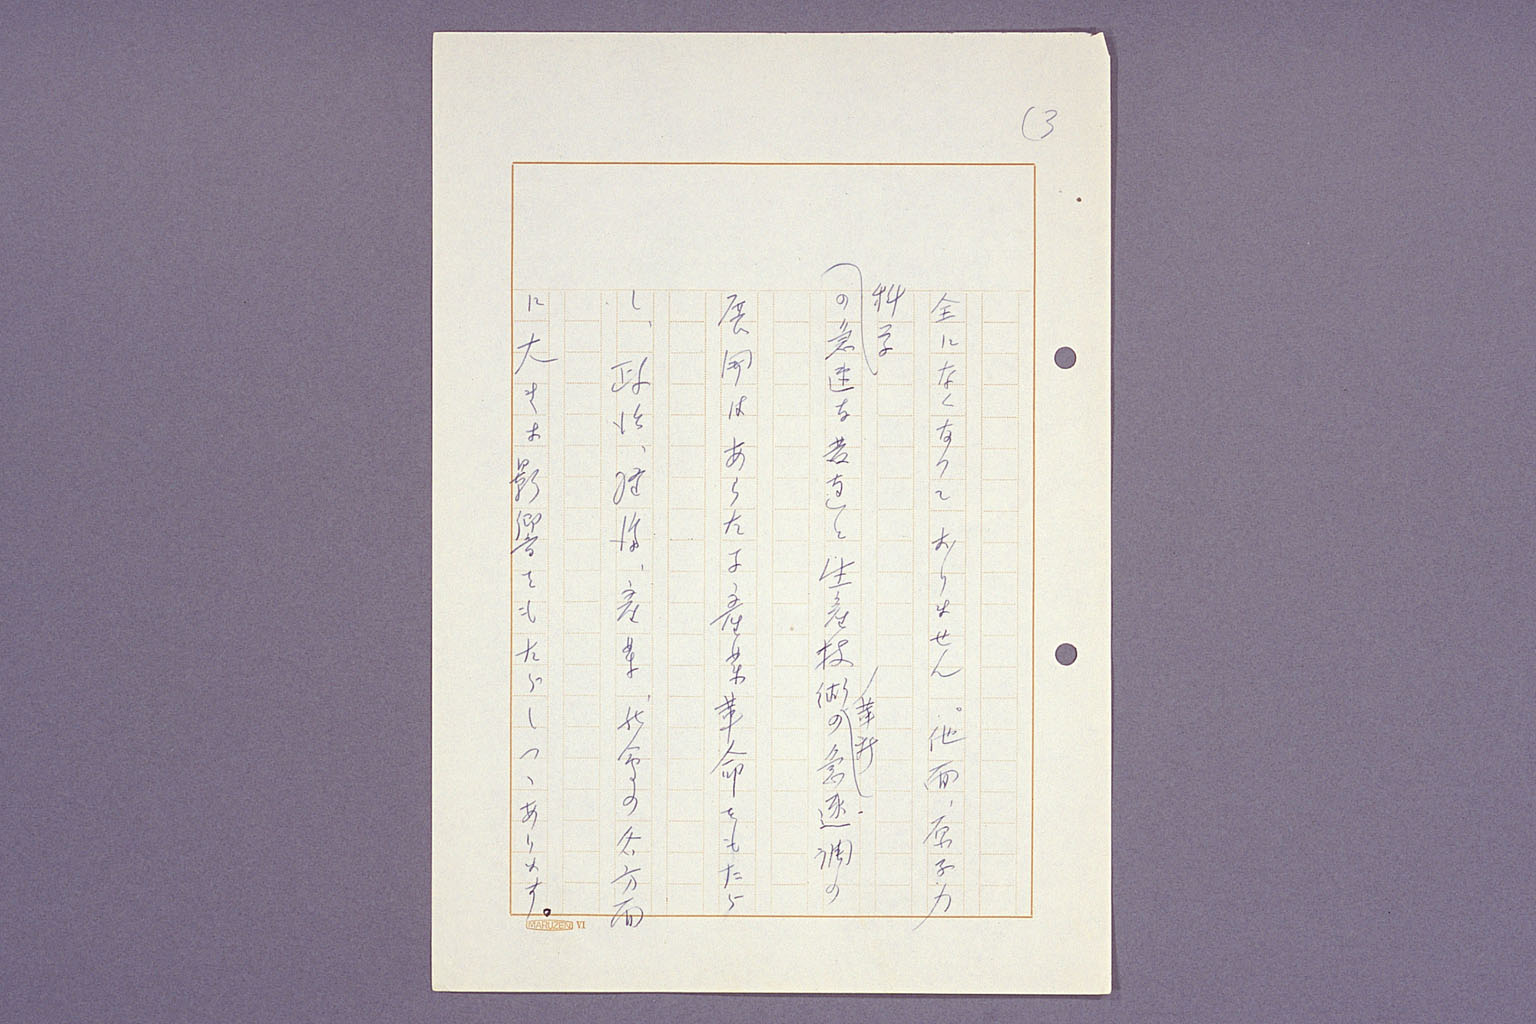 (3
全になくなっておりません。他面、原子力
科学
の急速な発達と生産技術の急速調の
革新
展開はあらたな産業革命をもたら
し、政治、経済、産業、社会の各方面
に大きな影響をもたらしつゝあります。
MARUZEN VI